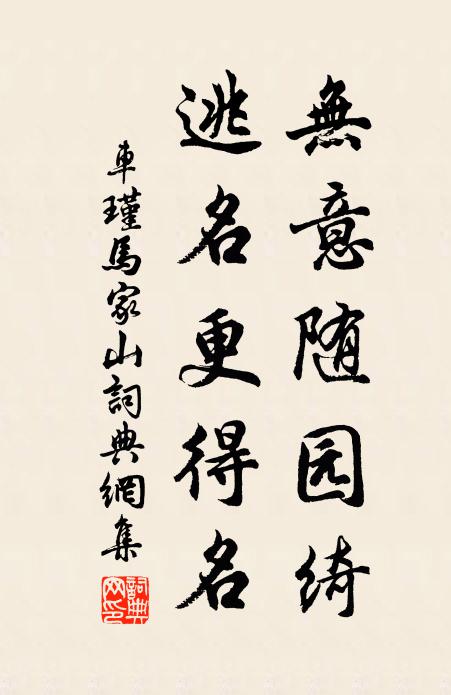 無意随园绮
逃名更得名
車瑾馬家山詞典網集
詞典网印